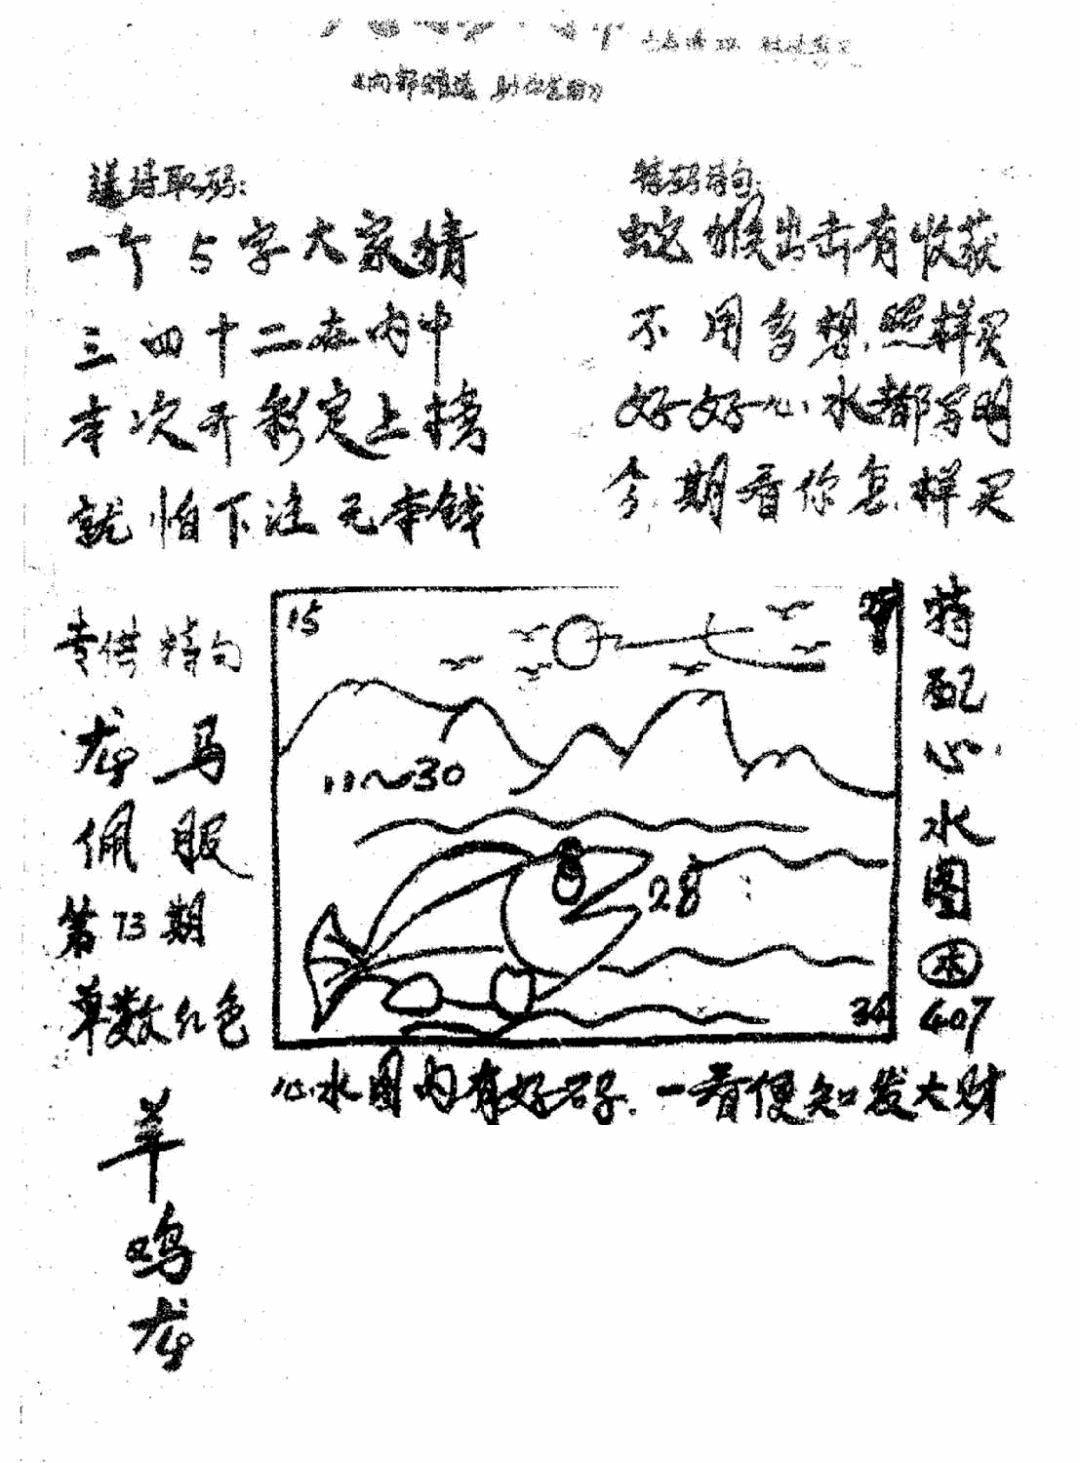 一个5字大家猜
三四十二在内中
本次开彩定上榜
就怕下注无本钱
特码诗句:
蛇猴出击有收获
不用多想照样买
好好心水都写明
今期看你怎样买
专供特句
龙马
佩服
第73期
单数红色
羊
鸡
龙
15
11~30
28
34
特配心水图
407
心水图内有好码子.一看便知发大财